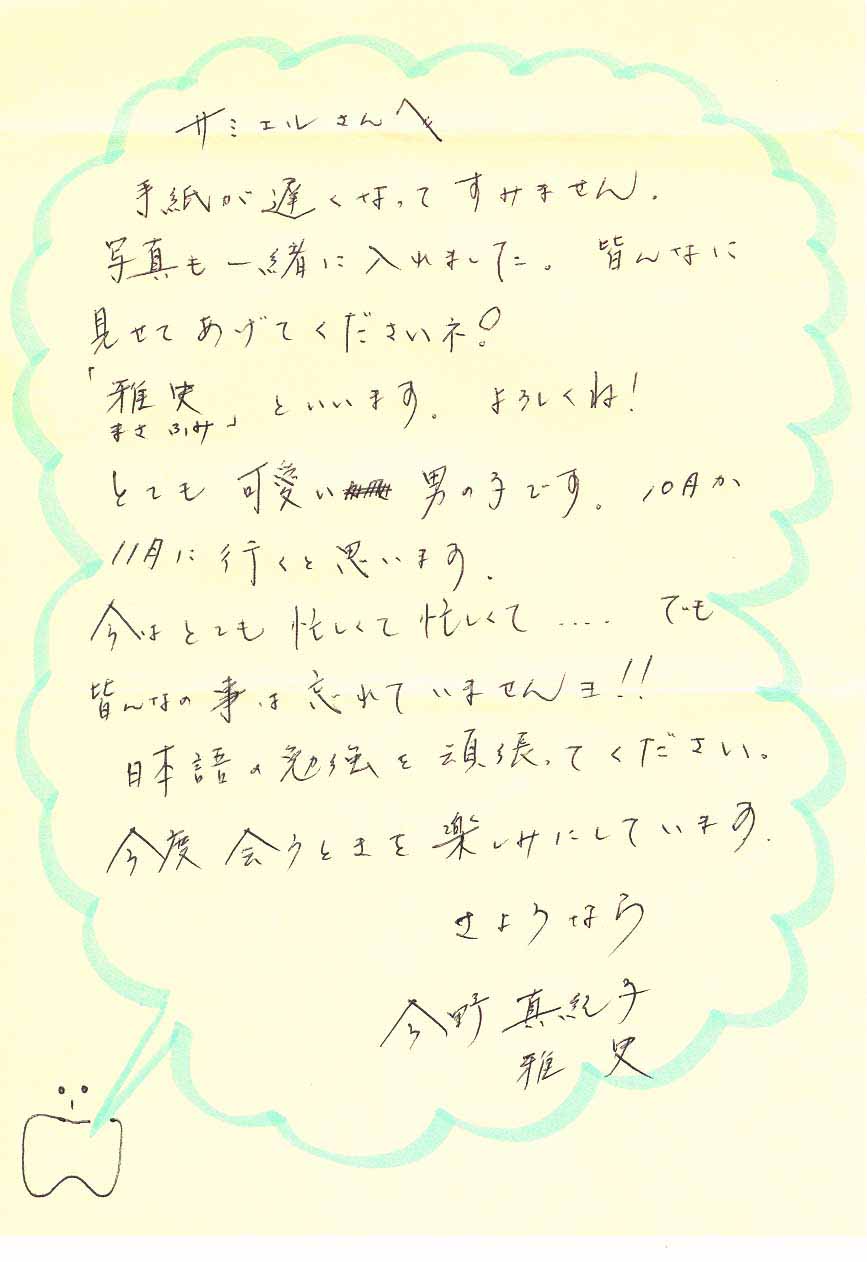 サミエルさんへ
手紙が遅くなってすみません.
写真も一緒に入れました。皆んなに
見せてあげてくださいネ!
「雅史
まさふみ」といいます。よろしくね!
とても可愛い男の子です。10月か
11月に行くと思います.
今はとても忙しくて忙しくて ‥‥ でも
皆んなの事は忘れていませんヨ!!
日本語の勉強を頑張ってください。
今度会うときを楽しみにしています.
さようなら
今野 真紀子
雅史